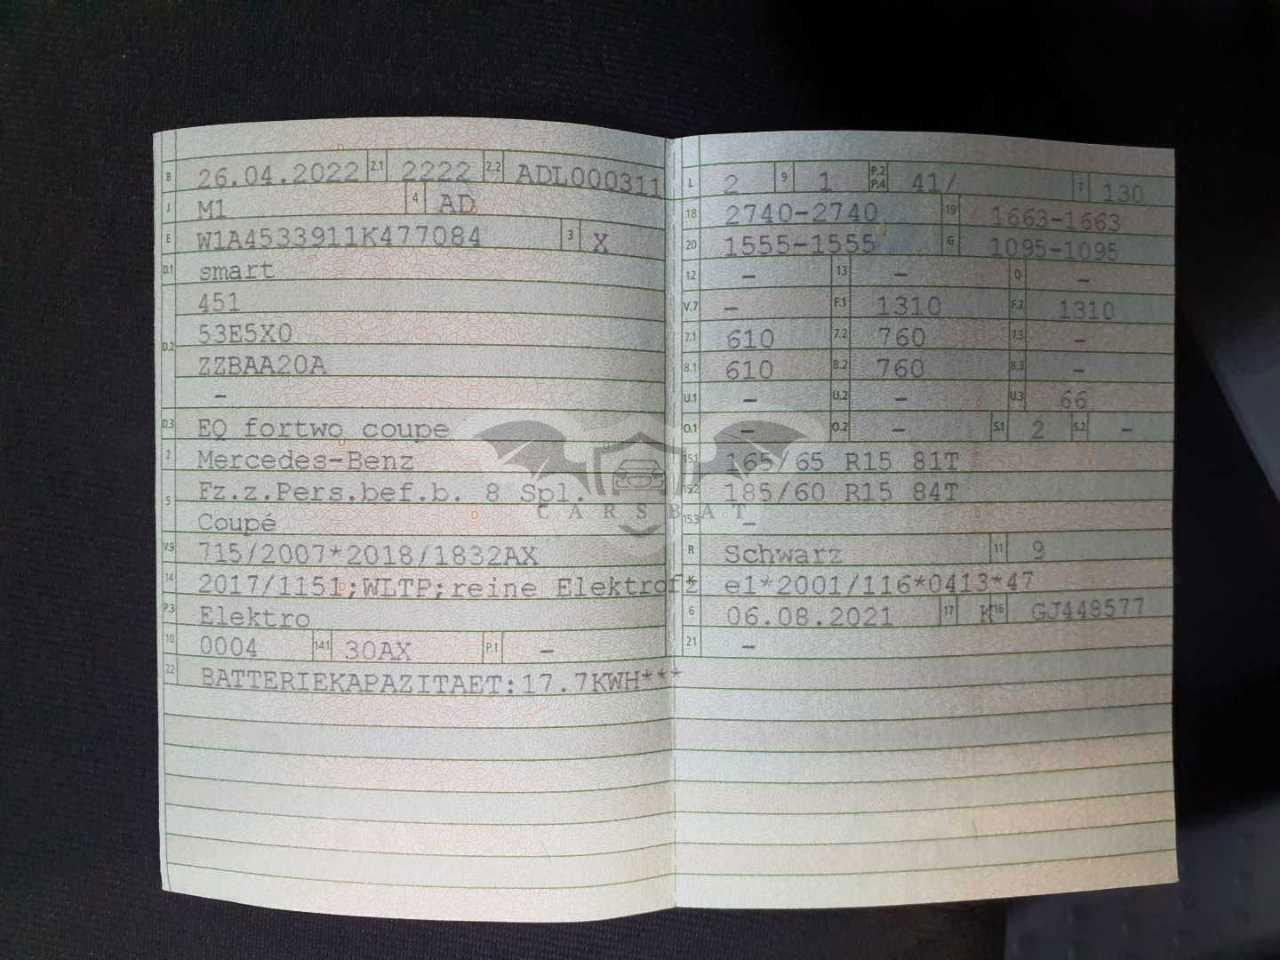 B 26.04.2022 2.1 2222 2.2 ADL000311
J M1 4 AD
E W1A4533911K477084 3 X
D.1 smart
451
D.2 53E5X0
ZZBAA20A
–
D.3 EQ fortwo coupe
2 Mercedes-Benz
5 Fz.z.Pers.bef.b. 8 Spl.
Coupé
V.9 715/2007*2018/1832AX
14 2017/1151;WLTP;reine Elektrofz
P.3 Elektro
10 0004 14.1 30AX P.1 –
22 BATTERIEKAPAZITAET:17.7KWH***
L 2 9 1 P.2 P.4 41/ T 130
18 2740-2740 19 1663-1663
20 1555-1555 G 1095-1095
12 – 13 – Q –
V.7 – F.1 1310 F.2 1310
7.1 610 7.2 760 7.3 –
8.1 610 8.2 760 8.3 –
U.1 – U.2 – U.3 66
O.1 – O.2 – S.1 2 S.2 –
15.1 165/65 R15 81T
15.2 185/60 R15 84T
15.3 –
R Schwarz 11 9
K e1*2001/116*0413*47
6 06.08.2021 17 K 16 GJ448577
21 –
CARSBAT